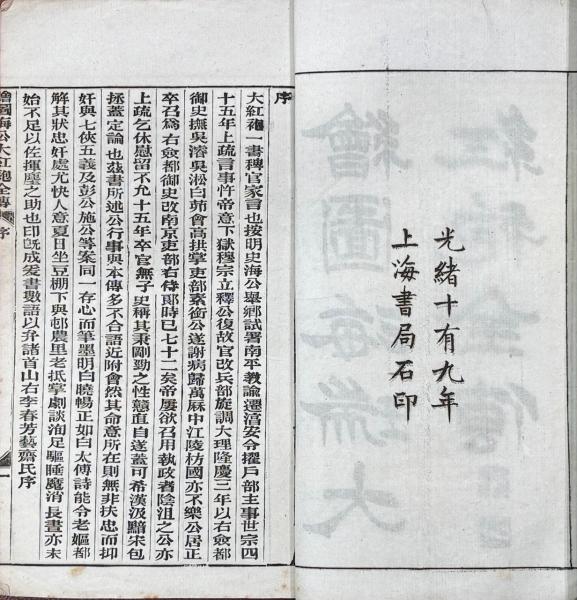 光緒十有九年
上海書局石印
序
大紅袍一書稗官家言也按明史海公舉鄉試署南平教諭遷淳安令擢戶部主事世宗四
十五年上疏言事忤帝意下獄穆宗立釋公復故官改兵部旋調大理隆慶三年以右僉都
御史撫吳濬吳淞白茆會高拱掌吏部素銜公遂謝病歸萬厤中江陵枋國亦不樂公居正
卒召為右僉都御史改南京吏部右侍郎時已七十二矣帝屢欲召用執政者陰沮之公亦
上疏乞休慰留不允十五年卒官無子史稱其秉剛勁之性戇直自遂蓋可希漢汲黯宋包
拯蓋定論也茲書所述公行事與本傳多不合語近附會然其命意所在則無非扶忠而抑
奸與七俠五義及彭公施公等案同一存心而筆墨明白曉暢正如白太傅詩能令老嫗都
解其狀忠奸處尤快人意夏日坐豆棚下與邨農里老抵掌劇談洵足驅睡魔消長晝亦未
始不足以佐揮麈之助也印既成爰書數語以弁諸首山右李春芳藝齋氏序
繪圖海公大紅袍全傳 序 一